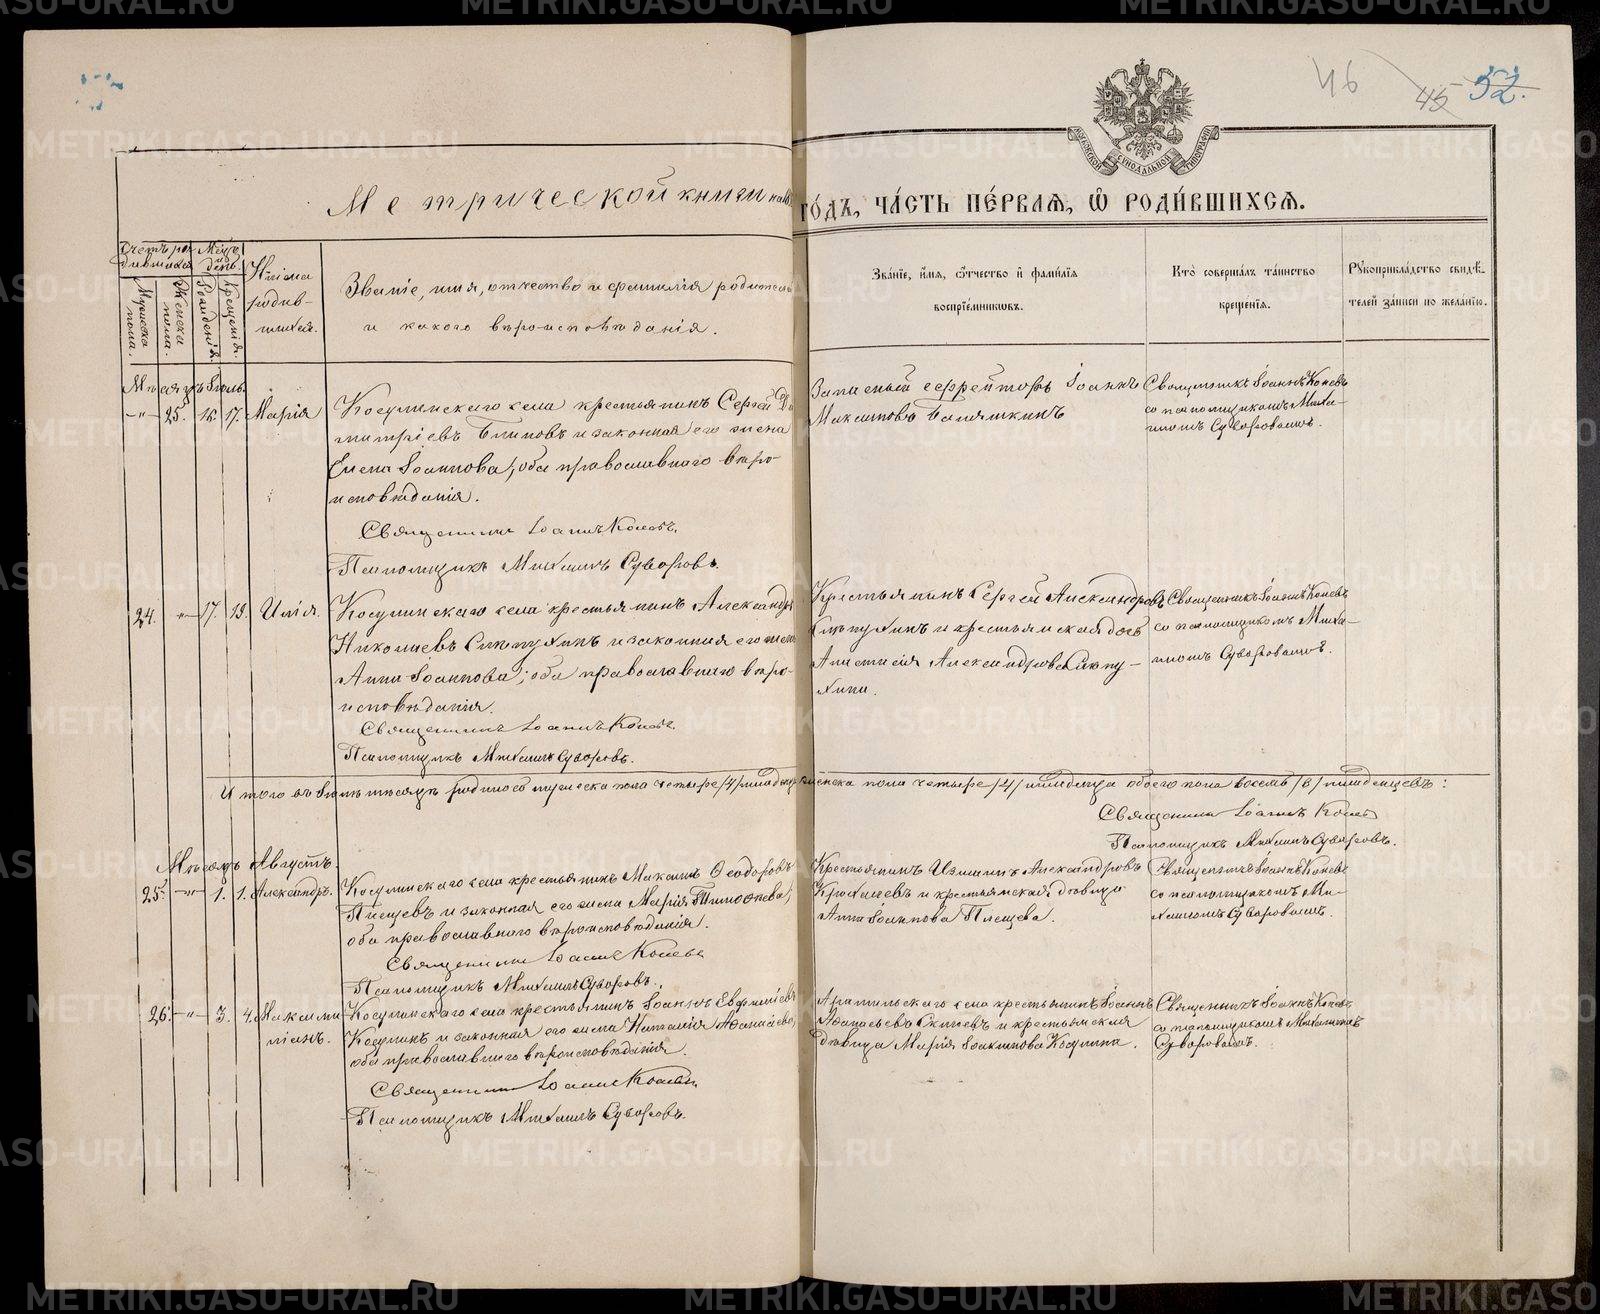 METRIKI.GASO-URAL.RU
46
45
52.
МОСКОВСКОЙ СѴНОДАЛЬНОЙ ТИПОГРАФІИ
Метрической книги на 18
ГО́ДЪ, ЧА́СТЬ ПЕ́РВАѦ, Ѿ РОДИ́ВШИХСѦ.
Счетъ ро-
дившихся
Мужеска
пола.
Женска
пола.
Мѣс.
и
день.
Рожденія.
Крещенія.
Имена
родив-
шихся.
Званіе, имя, отчество и фамилія родителей
и какого вѣроисповѣданія.
Зва́нїе, и́мѧ, ѻ҆́тчество и҆ фами́лїѧ
воспрїе́мникѡвъ.
Кто̀ соверша́лъ та́инство
креще́нїѧ.
Рꙋкоприкла́дство свидѣ́-
телей за́писи по жела́нїю.
Мѣсяцъ Іюль.
-"- 25. 15. 17. Марія
Косулинскаго села крестьянинъ Сергей Ди-
митріевъ Блиновъ и законная его жена
Елена Іоаннова, оба православнаго вѣро-
исповѣданія.
Священникъ Іоаннъ Коневъ.
Псаломщикъ Михаилъ Суворовъ.
Запасный ефрейторъ Іоаннъ
Максимовъ Балямкинъ
Священникъ Іоаннъ Коневъ
со псаломщикомъ Миха-
иломъ Суворовымъ.
24. -"- 17. 19. Илія.
Косулинскаго села крестьянинъ Александръ
Николаевъ Сипухинъ и законная его жена
Анна Іоаннова; оба православнаго вѣро-
исповѣданія.
Священникъ Іоаннъ Коневъ.
Псаломщикъ Михаилъ Суворовъ.
Крестьянинъ Сергей Александровъ
Сипухинъ и крестьянская дочь
Анастасія Александрова Сипу-
хина.
Священникъ Іоаннъ Коневъ
со псаломщикомъ Миха-
иломъ Суворовымъ.
Итого въ Іюлѣ мѣсяцѣ родилось мужеска пола четыре /4/ младенца женска пола четыре /4/ младенца обоего пола восемь /8/ младенцевъ:
Священникъ Іоаннъ Коневъ
Псаломщикъ Михаилъ Суворовъ.
Мѣсяцъ Августъ.
25. -"- 1. 1. Александръ.
Косулинскаго села крестьянинъ Максимъ Ѳеодоровъ
Плещевъ и законная его жена Марія Тимоѳеева,
оба православнаго вѣроисповѣданія.
Священникъ Іоаннъ Коневъ
Псаломщикъ Михаилъ Суворовъ.
Крестьянинъ Александровъ
и крестьянская дѣвица
Анна Іоаннова Плещева.
Священникъ Іоаннъ Коневъ
со псаломщикомъ Ми-
хаиломъ Суворовымъ.
26. -"- 3. 4. Максими-
ліанъ.
Косулинскаго села крестьянинъ Іоаннъ Евфиміевъ
Косулинъ и законная его жена Наталія Аѳанасіева,
оба православнаго вѣроисповѣданія.
Священникъ Іоаннъ Коневъ
Псаломщикъ Михаилъ Суворовъ.
Арамильскаго села крестьянинъ Іоаннъ
Аѳанасьевъ и крестьянская
дѣвица Марія Іоакимова Косулина.
Священникъ Іоаннъ Коневъ
со псаломщикомъ Михаиломъ
Суворовымъ.